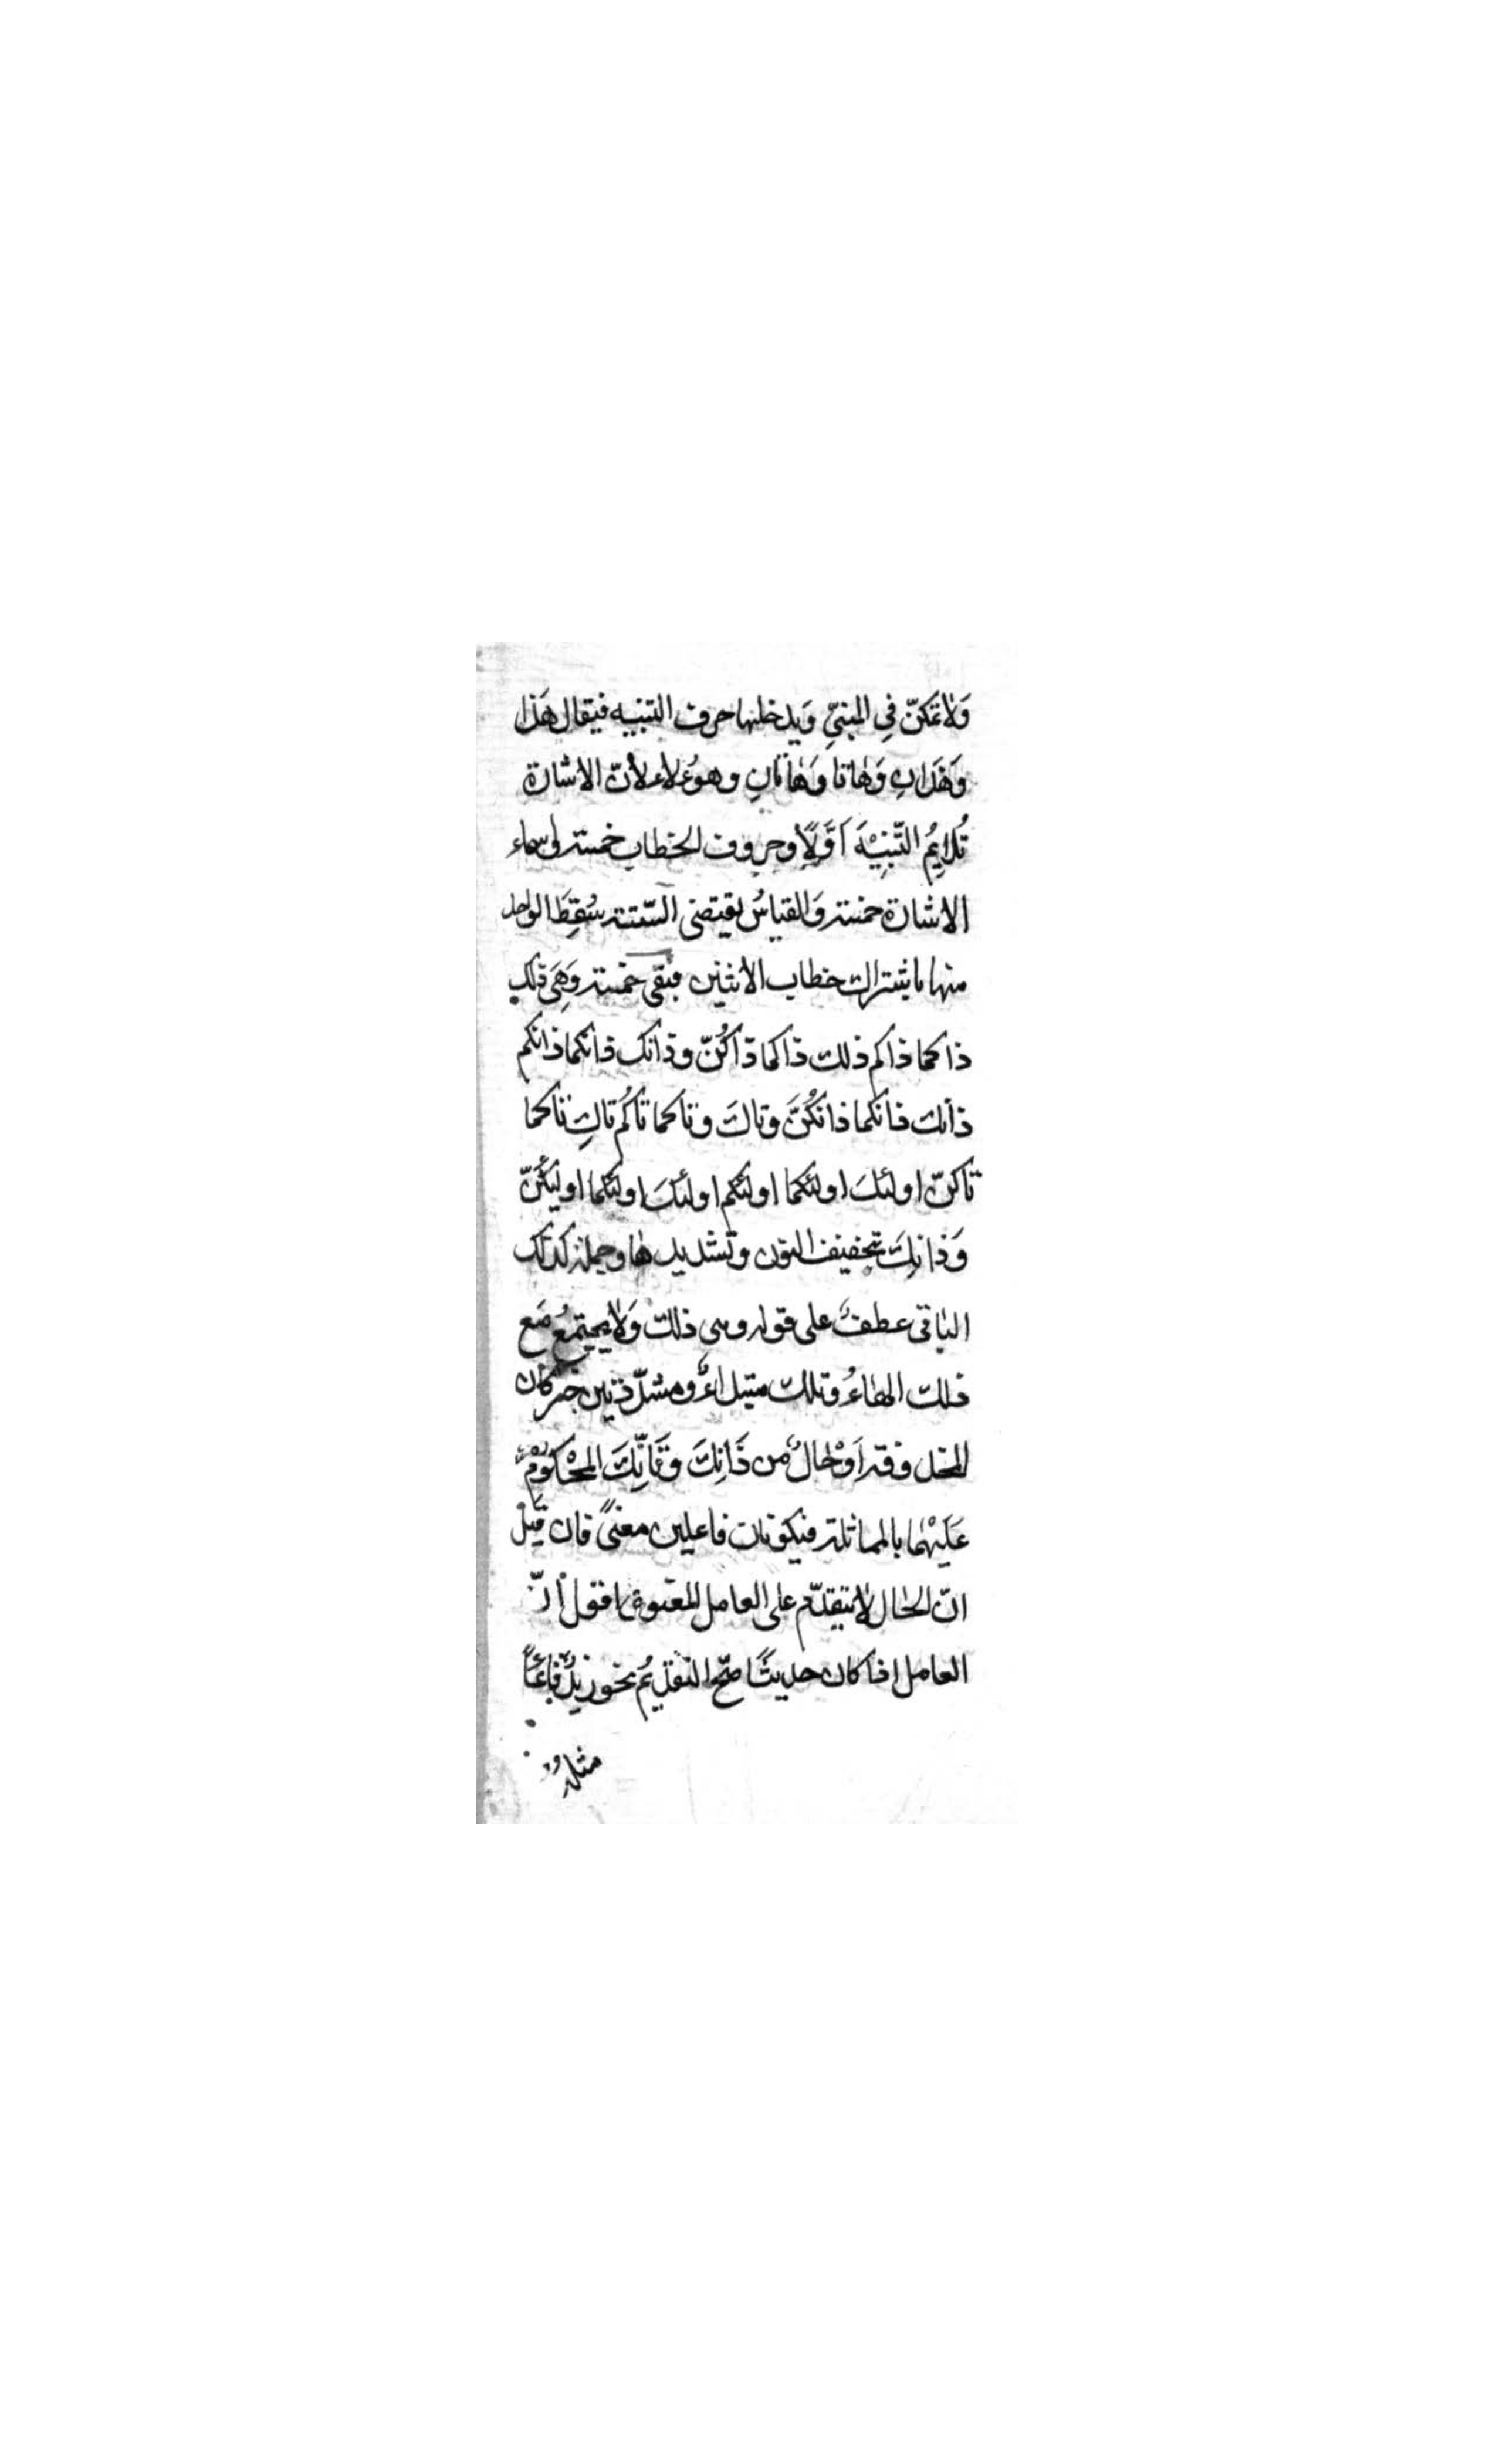 وَلاٰ تمَكنّ فِي المبنيِّ وَيدخلها حرف التنبيه فيقال هَذا
وَهَذَانِ وَهٰاتا وَهٰاتَانِ وهؤُلاء لأنّ الاشارة
تُلايِمُ التَّنبِيْهَ اَوَّلاً وحروف الخطاب خمسة لاسماء
الاشارة خمسة وَالقياسُ يقتضى السّتة سُقِطَ الواحد
منها باشتراك خطاب الاثنين فبقى خمسة وَهَى ذلك
ذاكما ذاكم ذلك ذاكما ذاكُنّ وذانك ذانكما ذانكم
ذانك ذانكما ذانكُنَّ وتاكَ وتاكما تاكُم تاكِ تاكما
تاكنّ اولئكَ اولئكما اولئكم اولئكَ اولئكما اولئكُنّ
وَذانِكَ بتخفيف النون وتشديدها وجملة كذلك
الباقى عطفٌ على قوله وهى ذلك وَلاٰ يجتمعُ مَع
ذلك الهٰاءُ وتلك مبتداءٌ ومشدّدتين خبر كان
المحذوفة اَوْ حٰالٌ من ذَانِكَ وتَانِّكَ المَحْكُوْمُ
عَلَيْهمٰا بالمماثلة فيكونان فاعلين معنىً فان قيل
انّ الحٰال لاٰ يتقدّم على العامل المعنوى فاقول انّ
العامل اذا كان حديثًا صَحّ التقديمُ نحو زيدٌ قائمًا
مثله